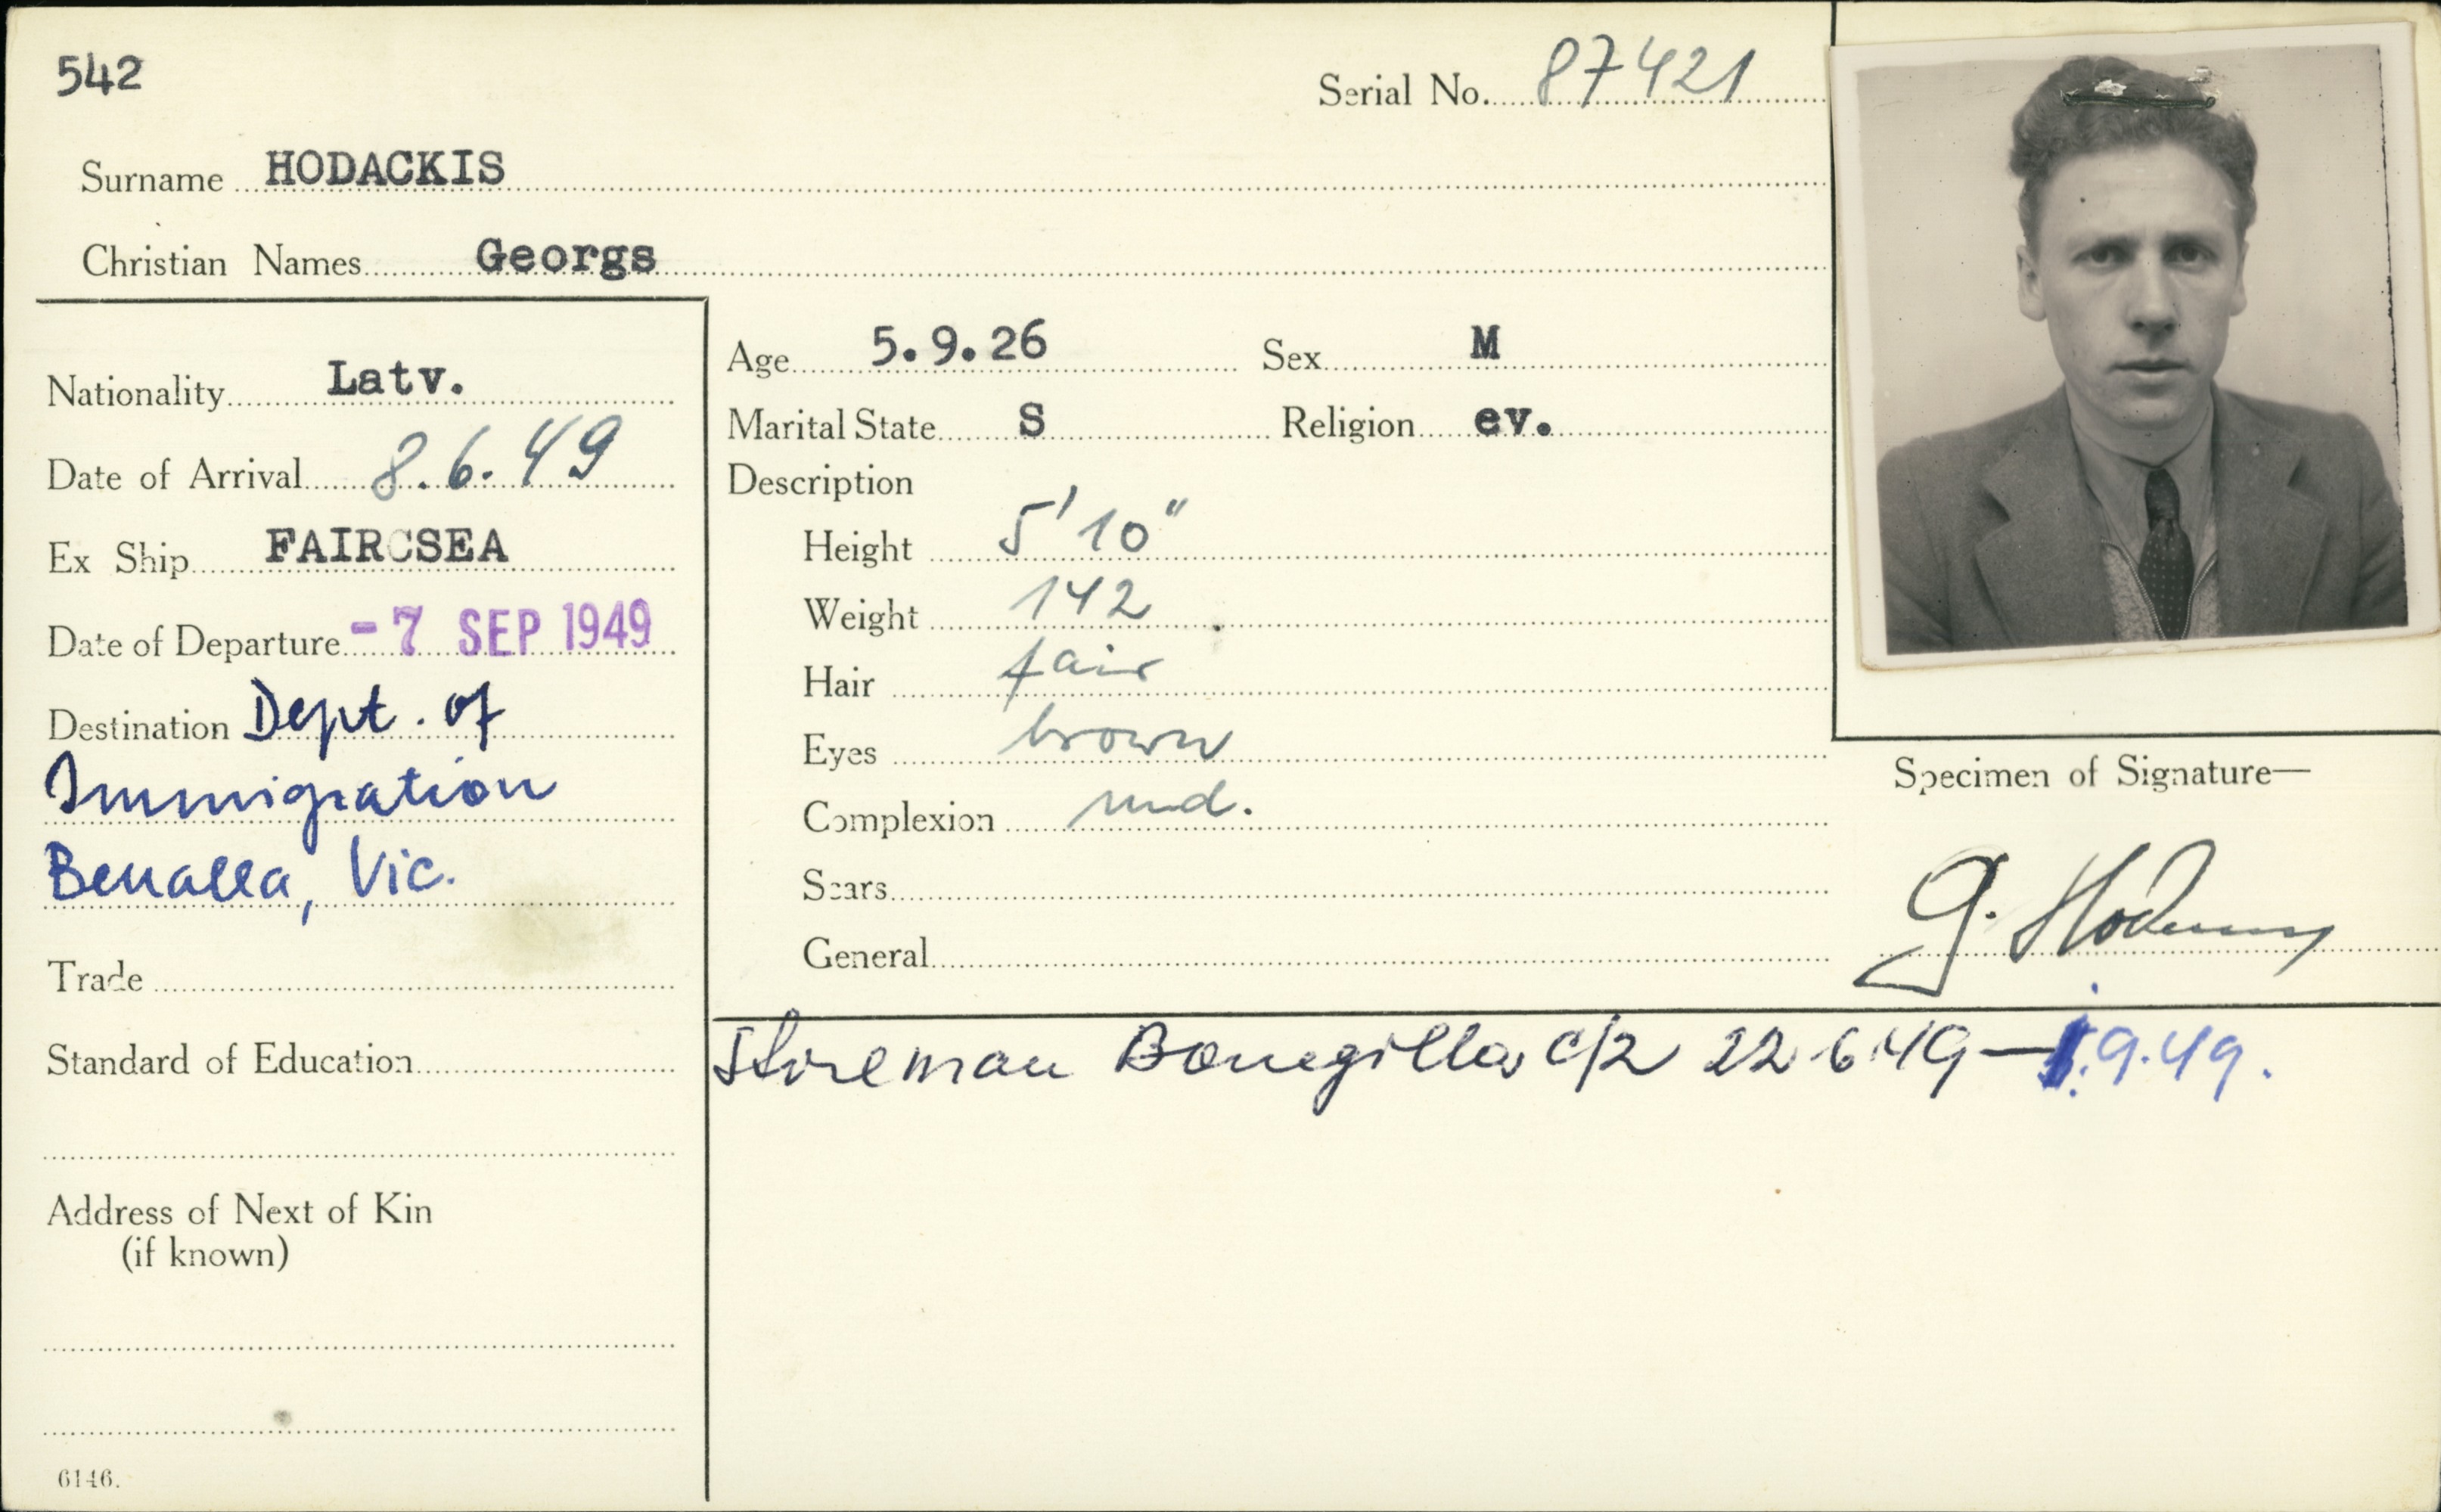 542
Serial No. 87421
Surname HODACKIS
Christian Names Georgs
Nationality Latv.
Date of Arrival 8.6.49
Ex Ship FAIRCSEA
Date of Departure - 7 SEP 1949
Destination Dept. of
Immigration
Benalla, Vic.
Trade
Standard of Education
Address of Next of Kin
(if known)
6146.
Age 5.9.26 Sex M
Marital State S Religion ev.
Description
Height 5'10"
Weight 142
Hair fair
Eyes brown
Complexion md.
Scars
General
Specimen of Signature—
G.
Storeman Bonegilla 22.6.49— .9.49.